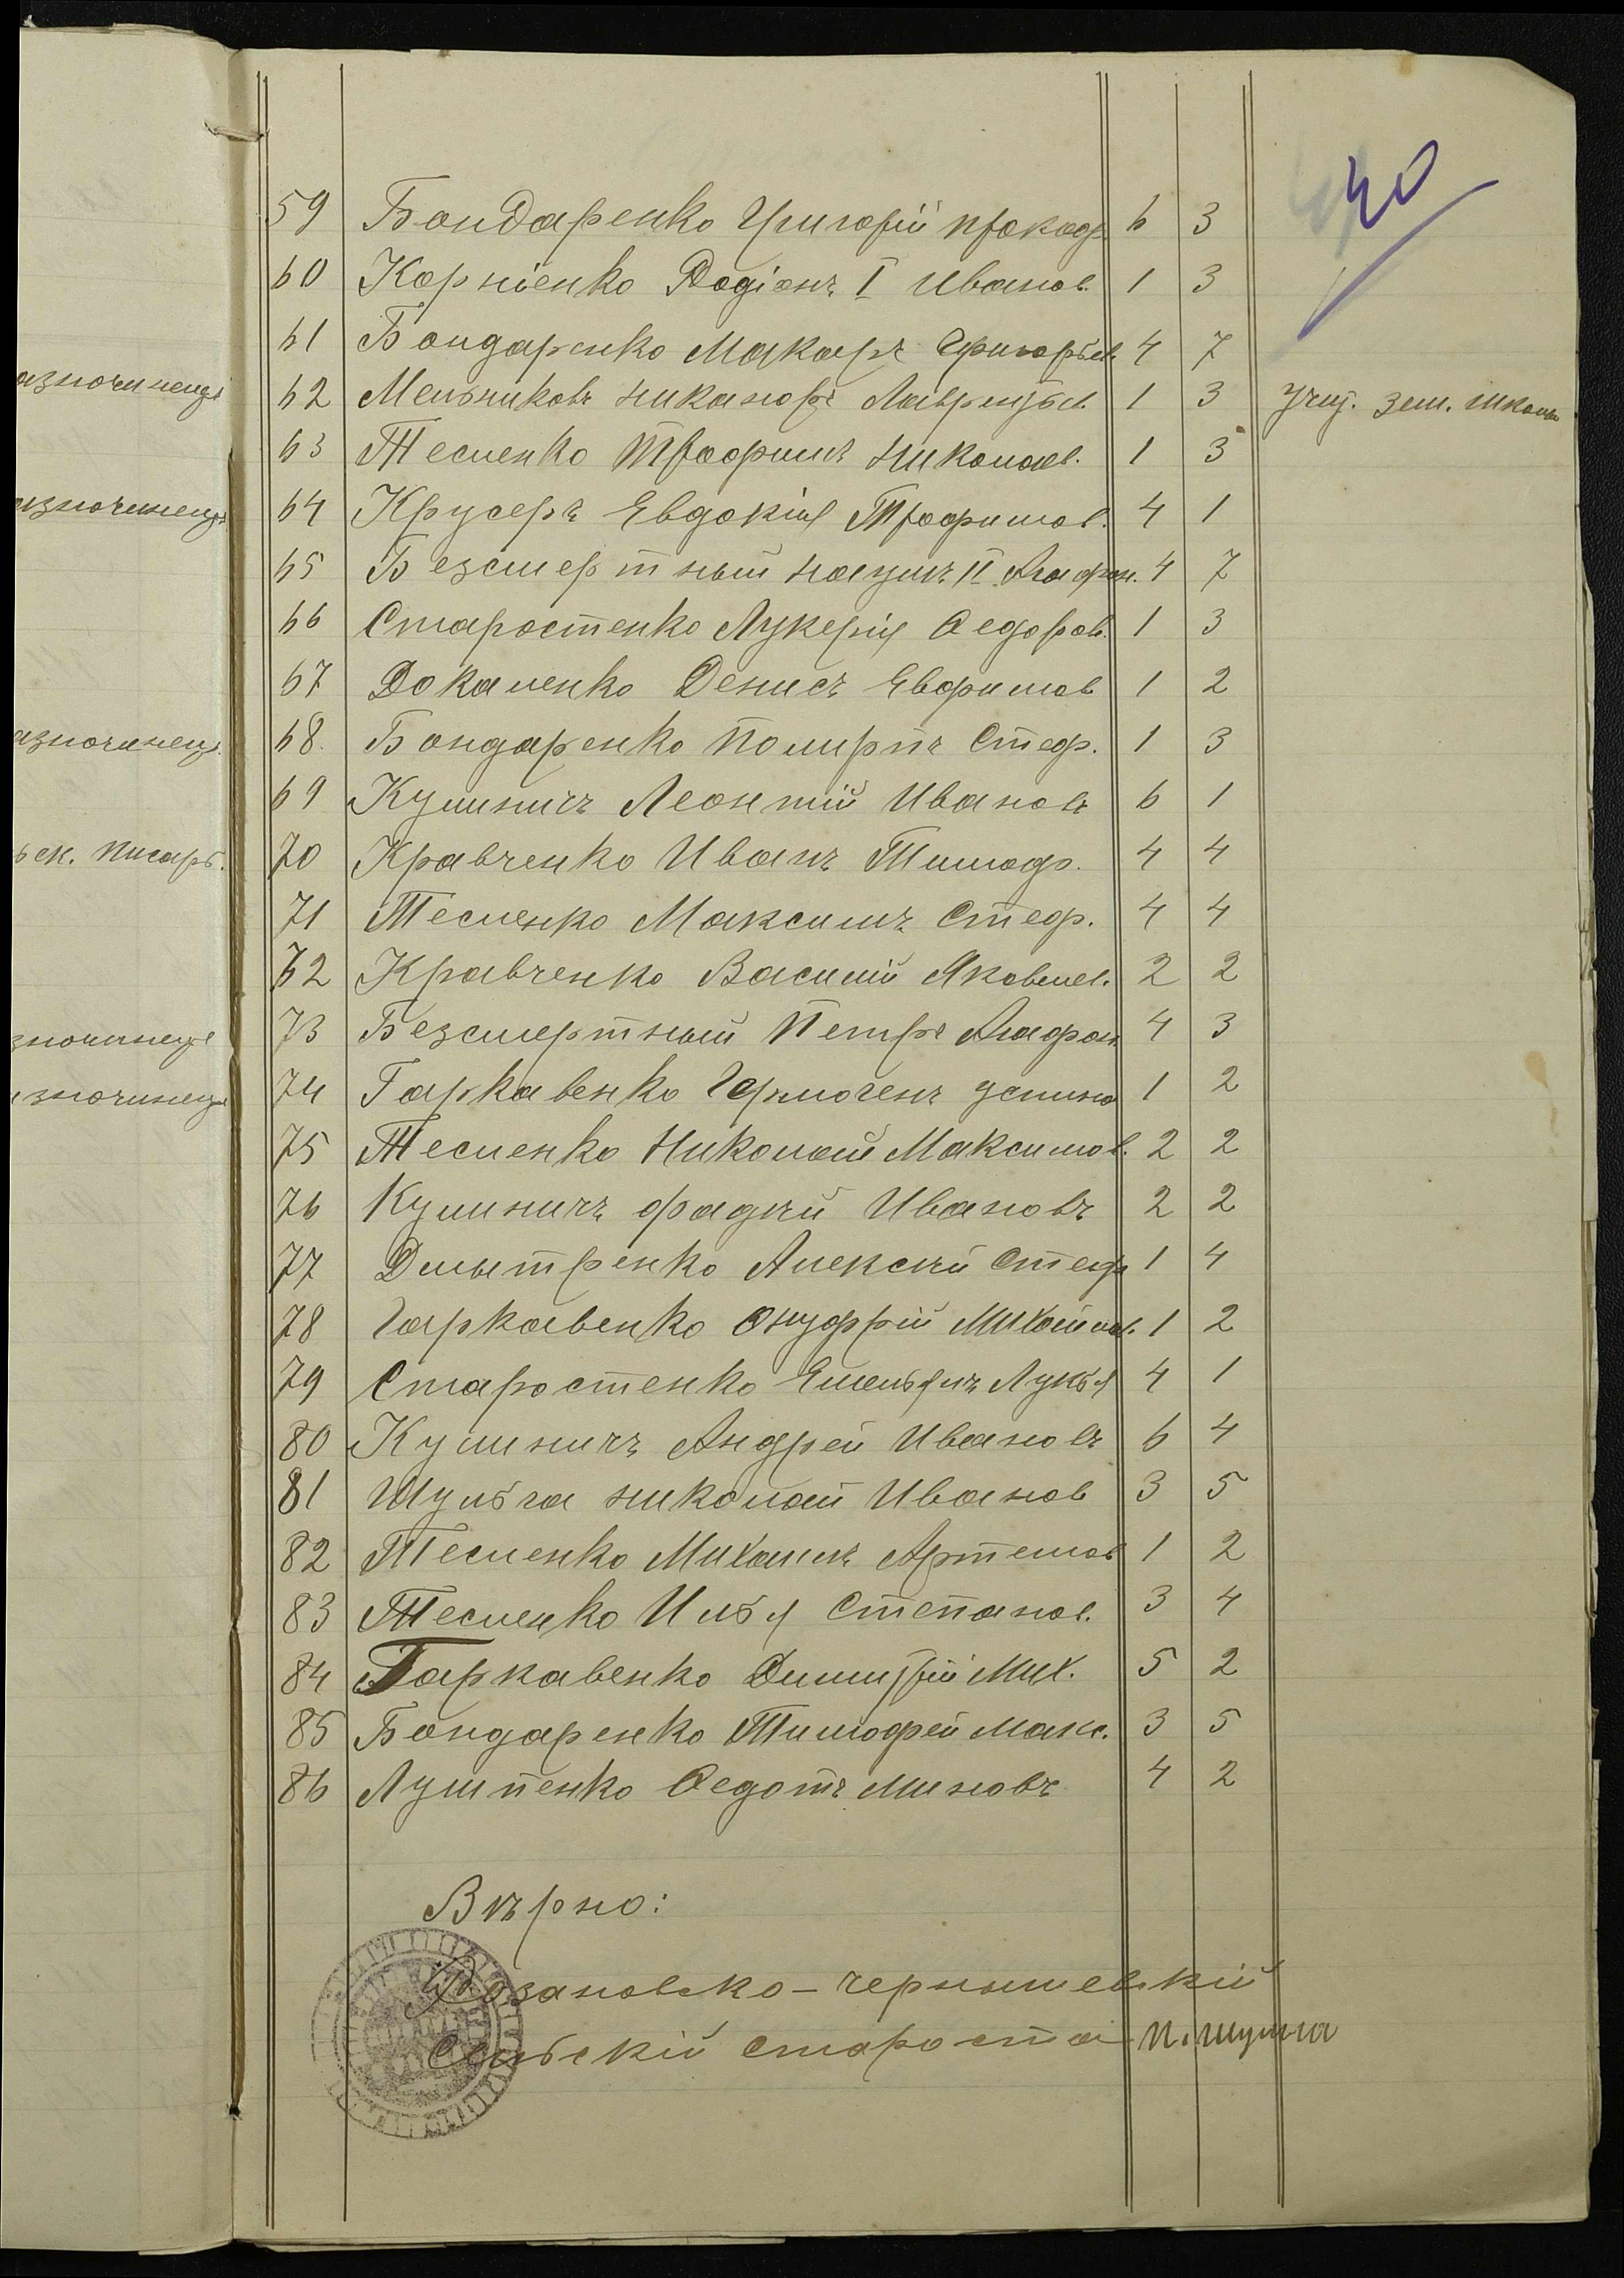 азночинецъ
азночинецъ
азночинецъ
ьск. писарь.
зночинецъ
азночинецъ
59 Бондаренко Григорій Прокоф. 6 3
60 Корніенко Родіонъ I Иванов. 1 3
61 Бондаренко Макаръ Григорьев. 4 7
62 Мельниковъ Никаноръ Лаврентьев. 1 3 Учит. зем. школы
63 Тесленко Трофимъ Николаев. 1 3
64 Крусеръ Евдокія Трофимов. 4 1
65 Безсмертный Наумъ II Агафон. 4 7
66 Старостенко Лукерія Ѳедоров. 1 3
67 Докаленко Денисъ Евфимов 1 2
68. Бондаренко Полирпъ Стеф. 1 3
69 Кулиничъ Леонтій Ивановъ 6 1
70 Кравченко Иванъ Тимоф. 4 4
71 Тесленко Максимъ Стеф. 4 4
72 Кравченко Василій Яковлев. 2 2
73 Безсмертный Петръ Агафон. 4 3
74 Гаркавенко Гермогенъ Устино 1 2
75 Тесленко Николай Максимов. 2 2
76 Кулиничъ Фадѣй Ивановъ 2 2
77 Дмытренко Алексѣй Стеф 1 4
78 Гаркавенко Онуфрій Михайлов. 1 2
79 Старостенко Емельянъ Лукья 4 1
80 Кулиничъ Андрей Ивановъ 6 4
81 Шульга Николай Иванов 3 5
82 Тесленко Михаилъ Артемов 1 2
83 Тесленко Илья Степанов. 3 4
84 Гаркавенко Димитрій Мих. 5 2
85 Бондаренко Тимофей Макс. 3 5
86 Лушпенко Ѳедотъ Миновъ 4 2
Вѣрно:
Розановско-Чернышевскій
Сельскій Староста П. Шульга